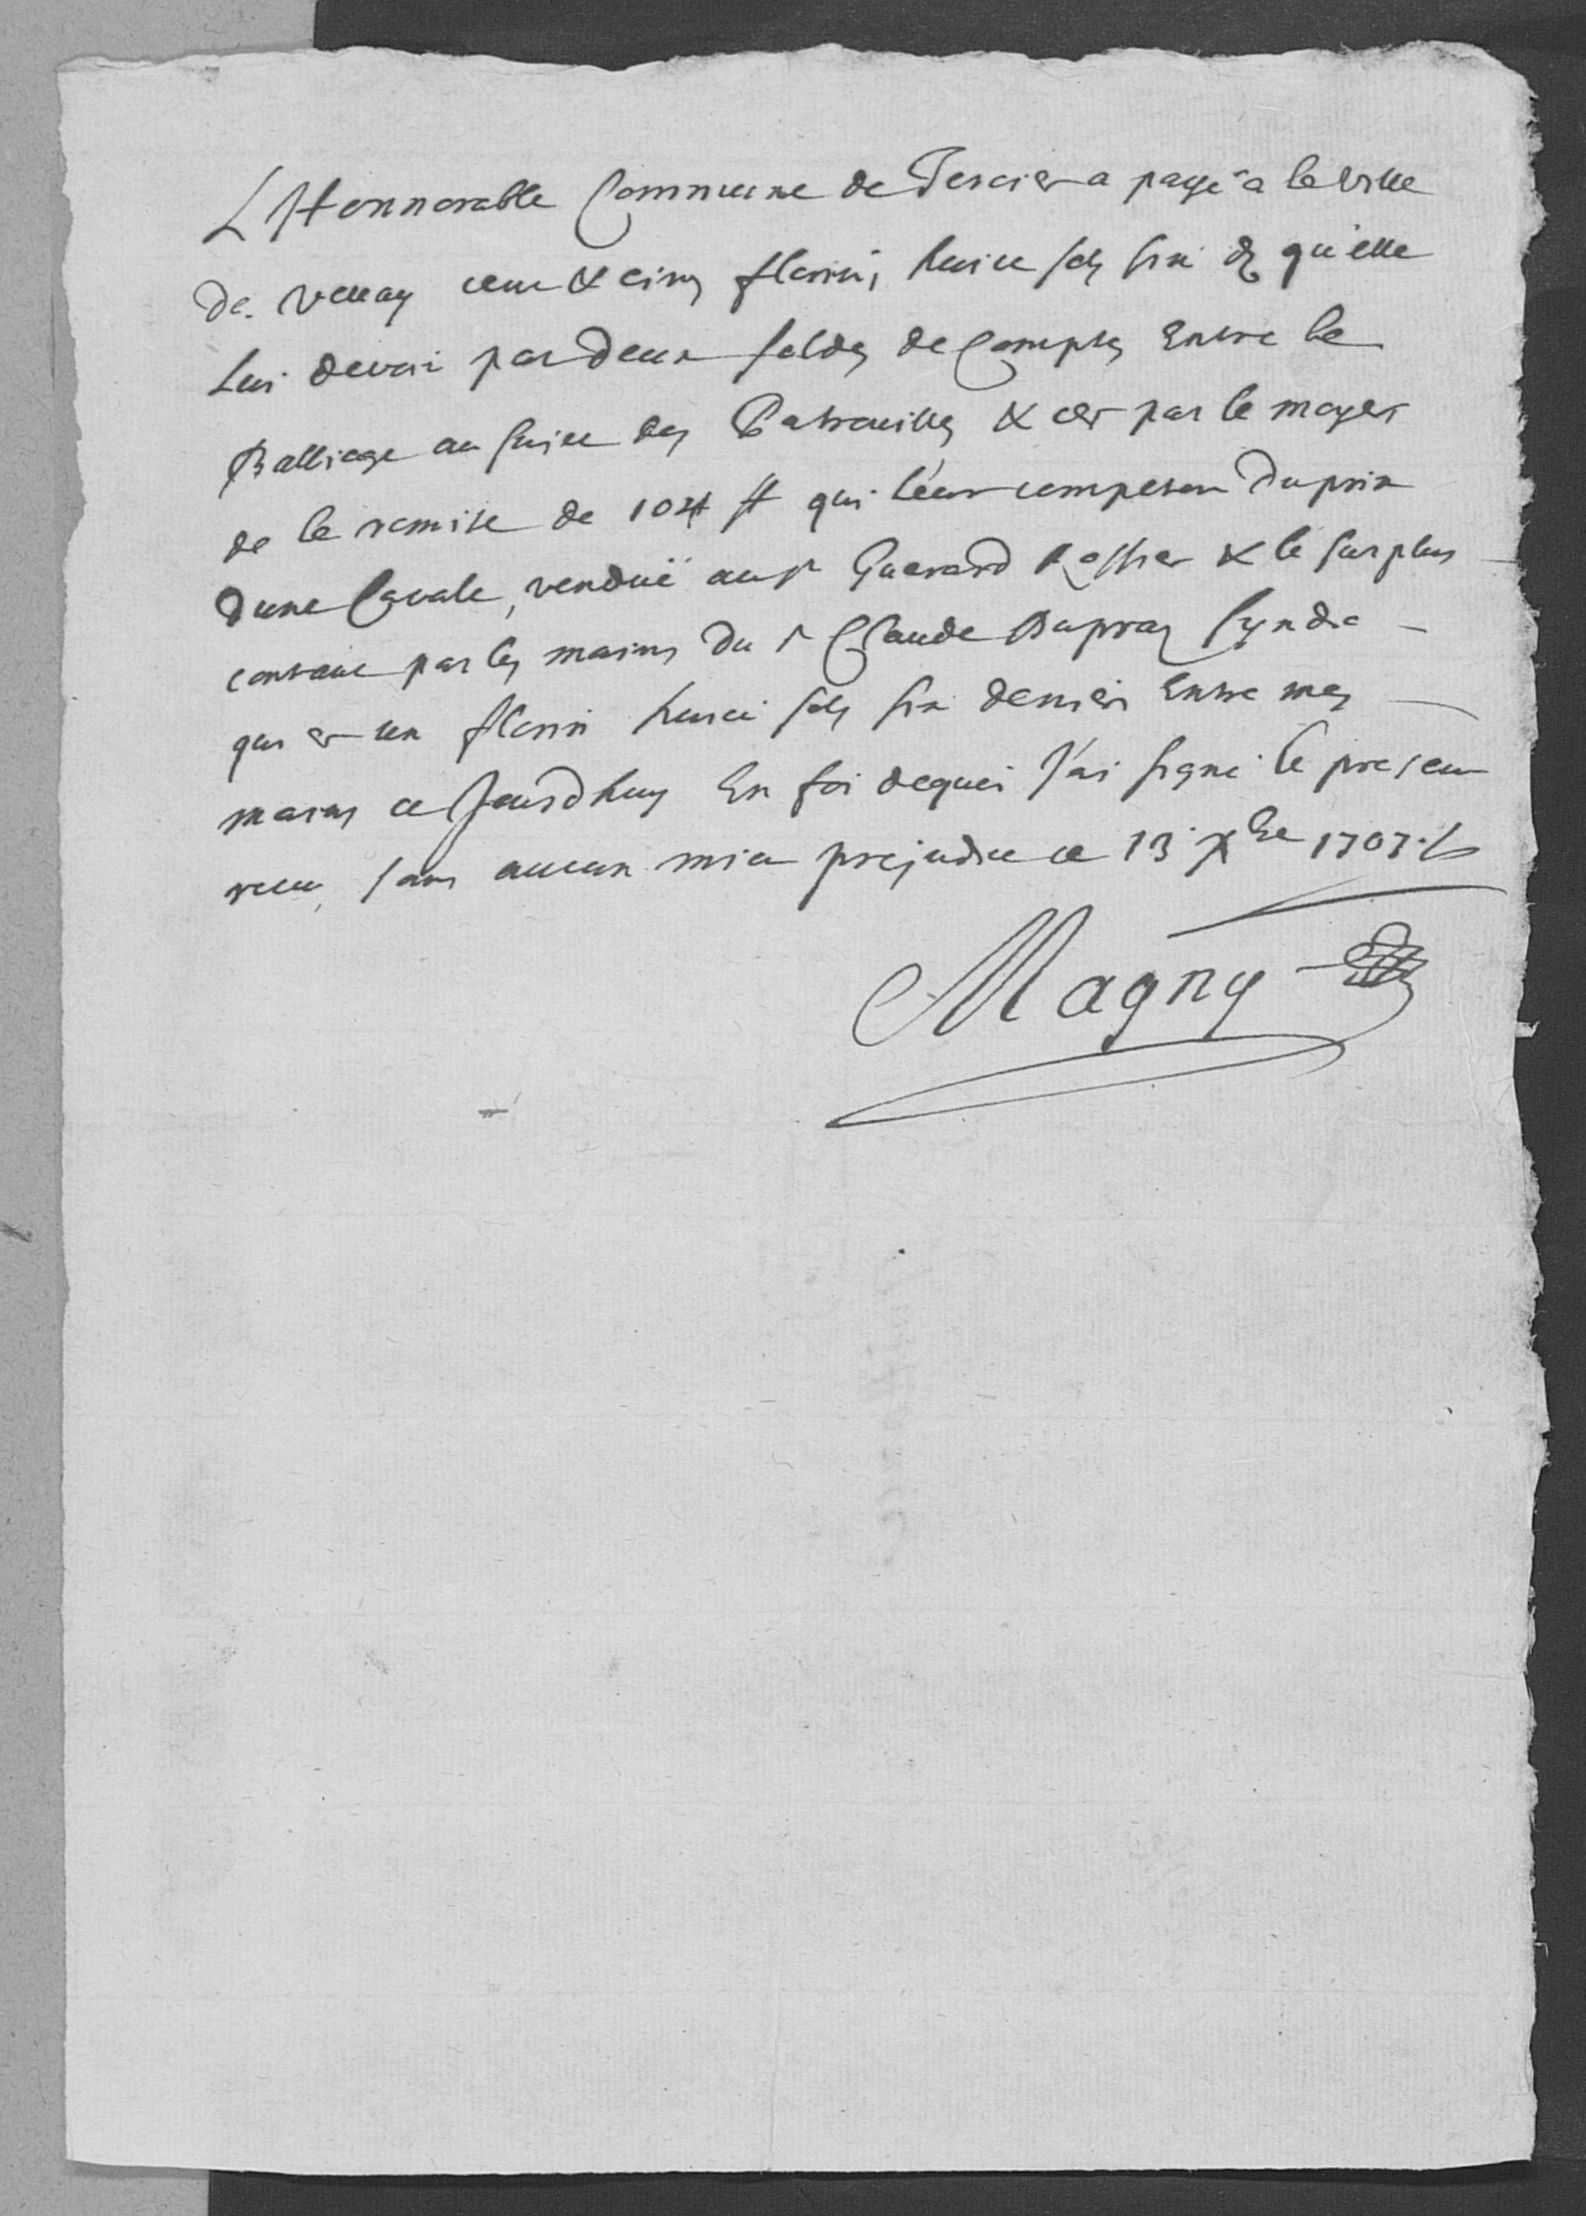 L Honnorable Commune de Tercier a payé a la Ville
de Vevay cent & cinq florins, huict sols six d qu'elle
lui devoit par deux soldes de Comptes Entre le
Balliage au suject des Patrouilles & cet par le moyen
de la remise de 104 ff qui leur competent du prix
dune Cavale, venduë au Sr Guerard & le surplus
contant par les mains du Sr Claude Dupraz Syndic
qui est un florin huict sols six deniers Entre mes
mains ce Jourdhuy En foi dequoi J'ai signé le present
receu, sans aucun mien prejudice ce 13 Xbre 1707
Magny